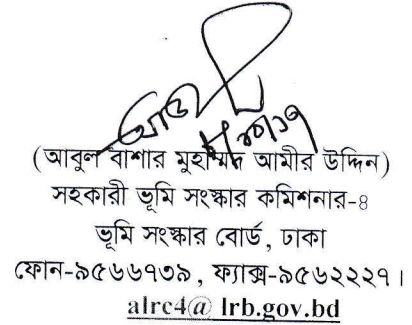 (আবুল বাশার মুহাম্মদ আমীর উদ্দিন)
সহকারী ভূমি সংস্কার কমিশনার-৪
ভূমি সংস্কার বোর্ড, ঢাকা
ফোন-৯৫৬৬৭৩৯, ফ্যাক্স-৯৫৬২২২৭।
alrc4@ lrb.gov.bd